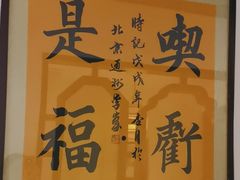 喫虧
是福
時記戊戌年月於
北京通州学